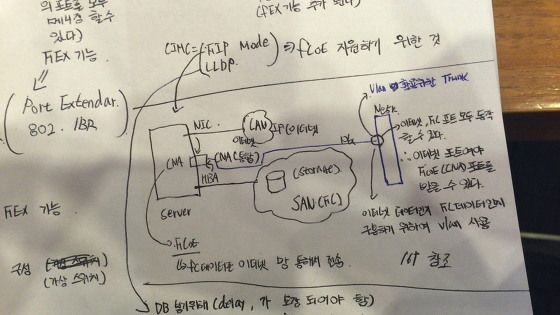 의 포트를 모두
제어할 수
있다)
FEX 기능.
(FEX 기능 추가 된다)
CIMC = FIP Mode
LLDP.
⇒ FCoE 지원하기 위한 것
(Port Extendar.
802. 1BR)
FEX 기능
구성
(가상 스위치)
NIC
LAN
IP/이더넷
이더넷
CNA
CNA(통합)
HBA
Server
(Storage)
SAN(FC)
FCoE
↳ FC데이터는 이더넷 망 통해서 전송.
Trunk
이더넷, FC 포트 모두 동작
할 수 있다.
∴ 이더넷 포트여야
FCoE(CNA) 포트를
받을 수 있다.
이더넷 데이터인지 FC데이터인지
구분하기 위하여 vlan 사용
참조
DB (delay, 가 보장 되어야 함)